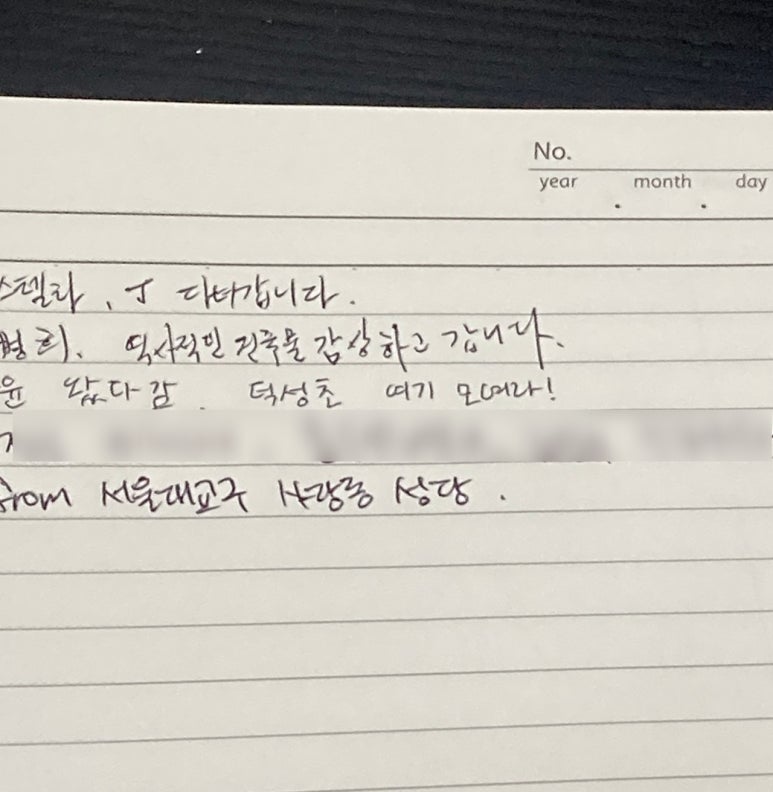 No.
year . month . day
스텔라, J 다녀갑니다.
병희. 역사적인 건축물 감상하고 갑니다.
윤 왔다감. 덕성초 여기 모여라!
from 서울대교구 사당동 성당.